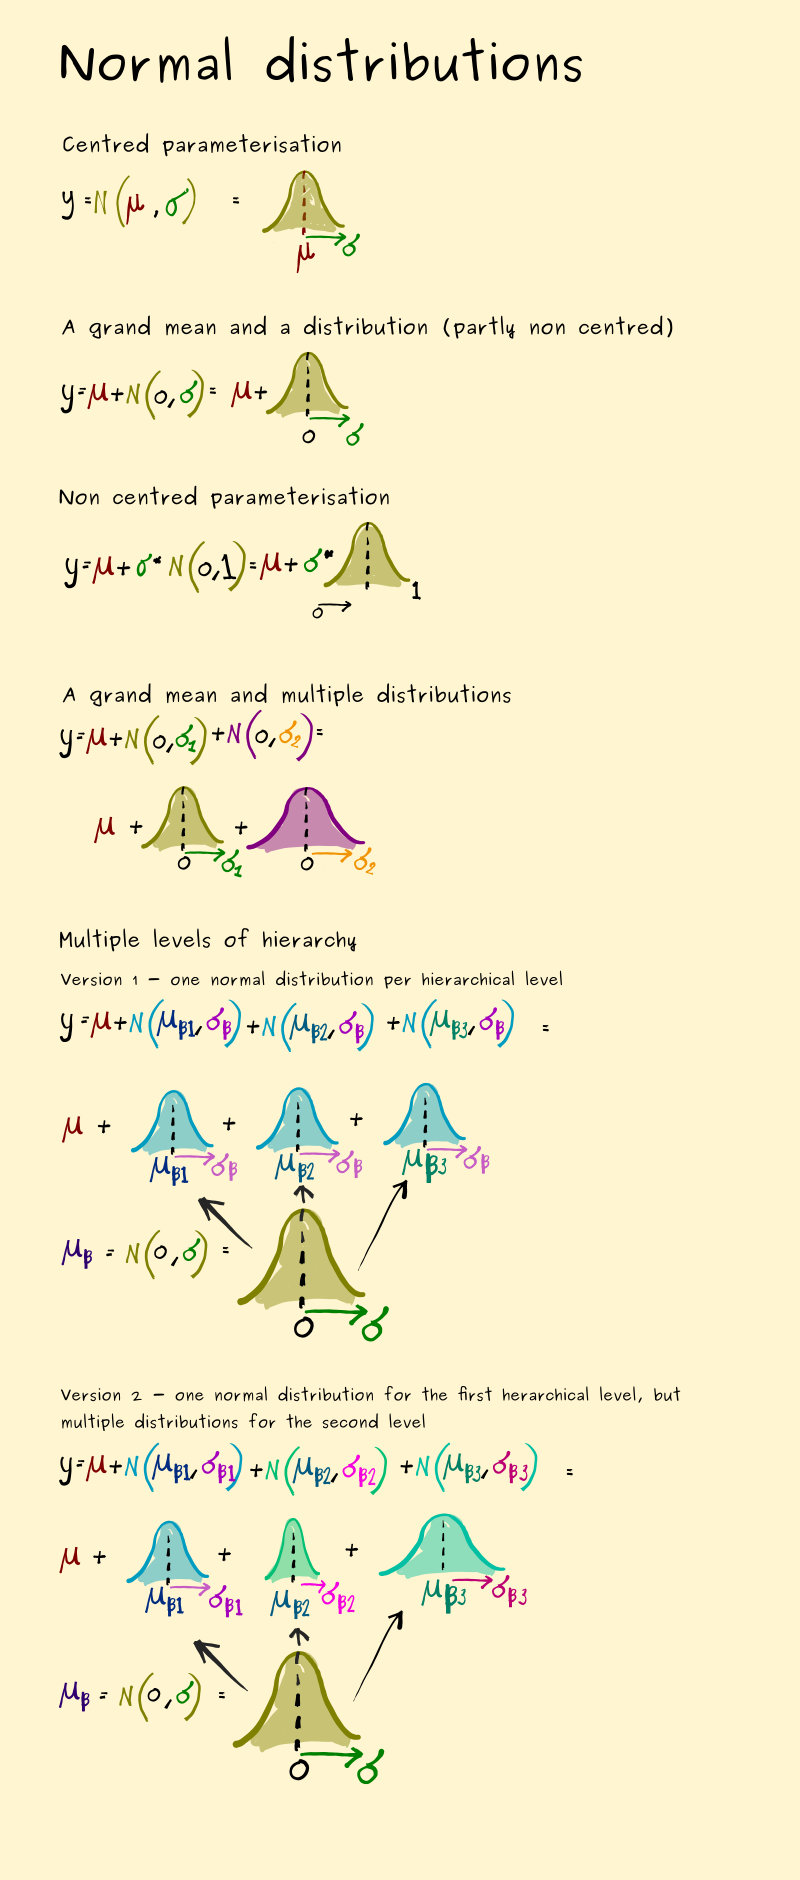 Normal distributions
Centred parameterisation
y = N(μ, σ) =
μ σ
A grand mean and a distribution (partly non centred)
y = μ + N(0, σ) = μ +
0 σ
Non centred parameterisation
y = μ + σ * N(0, 1) = μ + σ *
1
0
A grand mean and multiple distributions
y = μ + N(0, σ1) + N(0, σ2) =
μ + +
0 σ1 0 σ2
Multiple levels of hierarchy
Version 1 – one normal distribution per hierarchical level
y = μ + N(μβ1, σβ) + N(μβ2, σβ) + N(μβ3, σβ) =
μ + + +
μβ1 σβ μβ2 σβ μβ3 σβ
μβ = N(0, σ) =
0 σ
Version 2 – one normal distribution for the first herarchical level, but
multiple distributions for the second level
y = μ + N(μβ1, σβ1) + N(μβ2, σβ2) + N(μβ3, σβ3) =
μ + + +
μβ1 σβ1 μβ2 σβ2 μβ3 σβ3
μβ = N(0, σ) =
0 σ